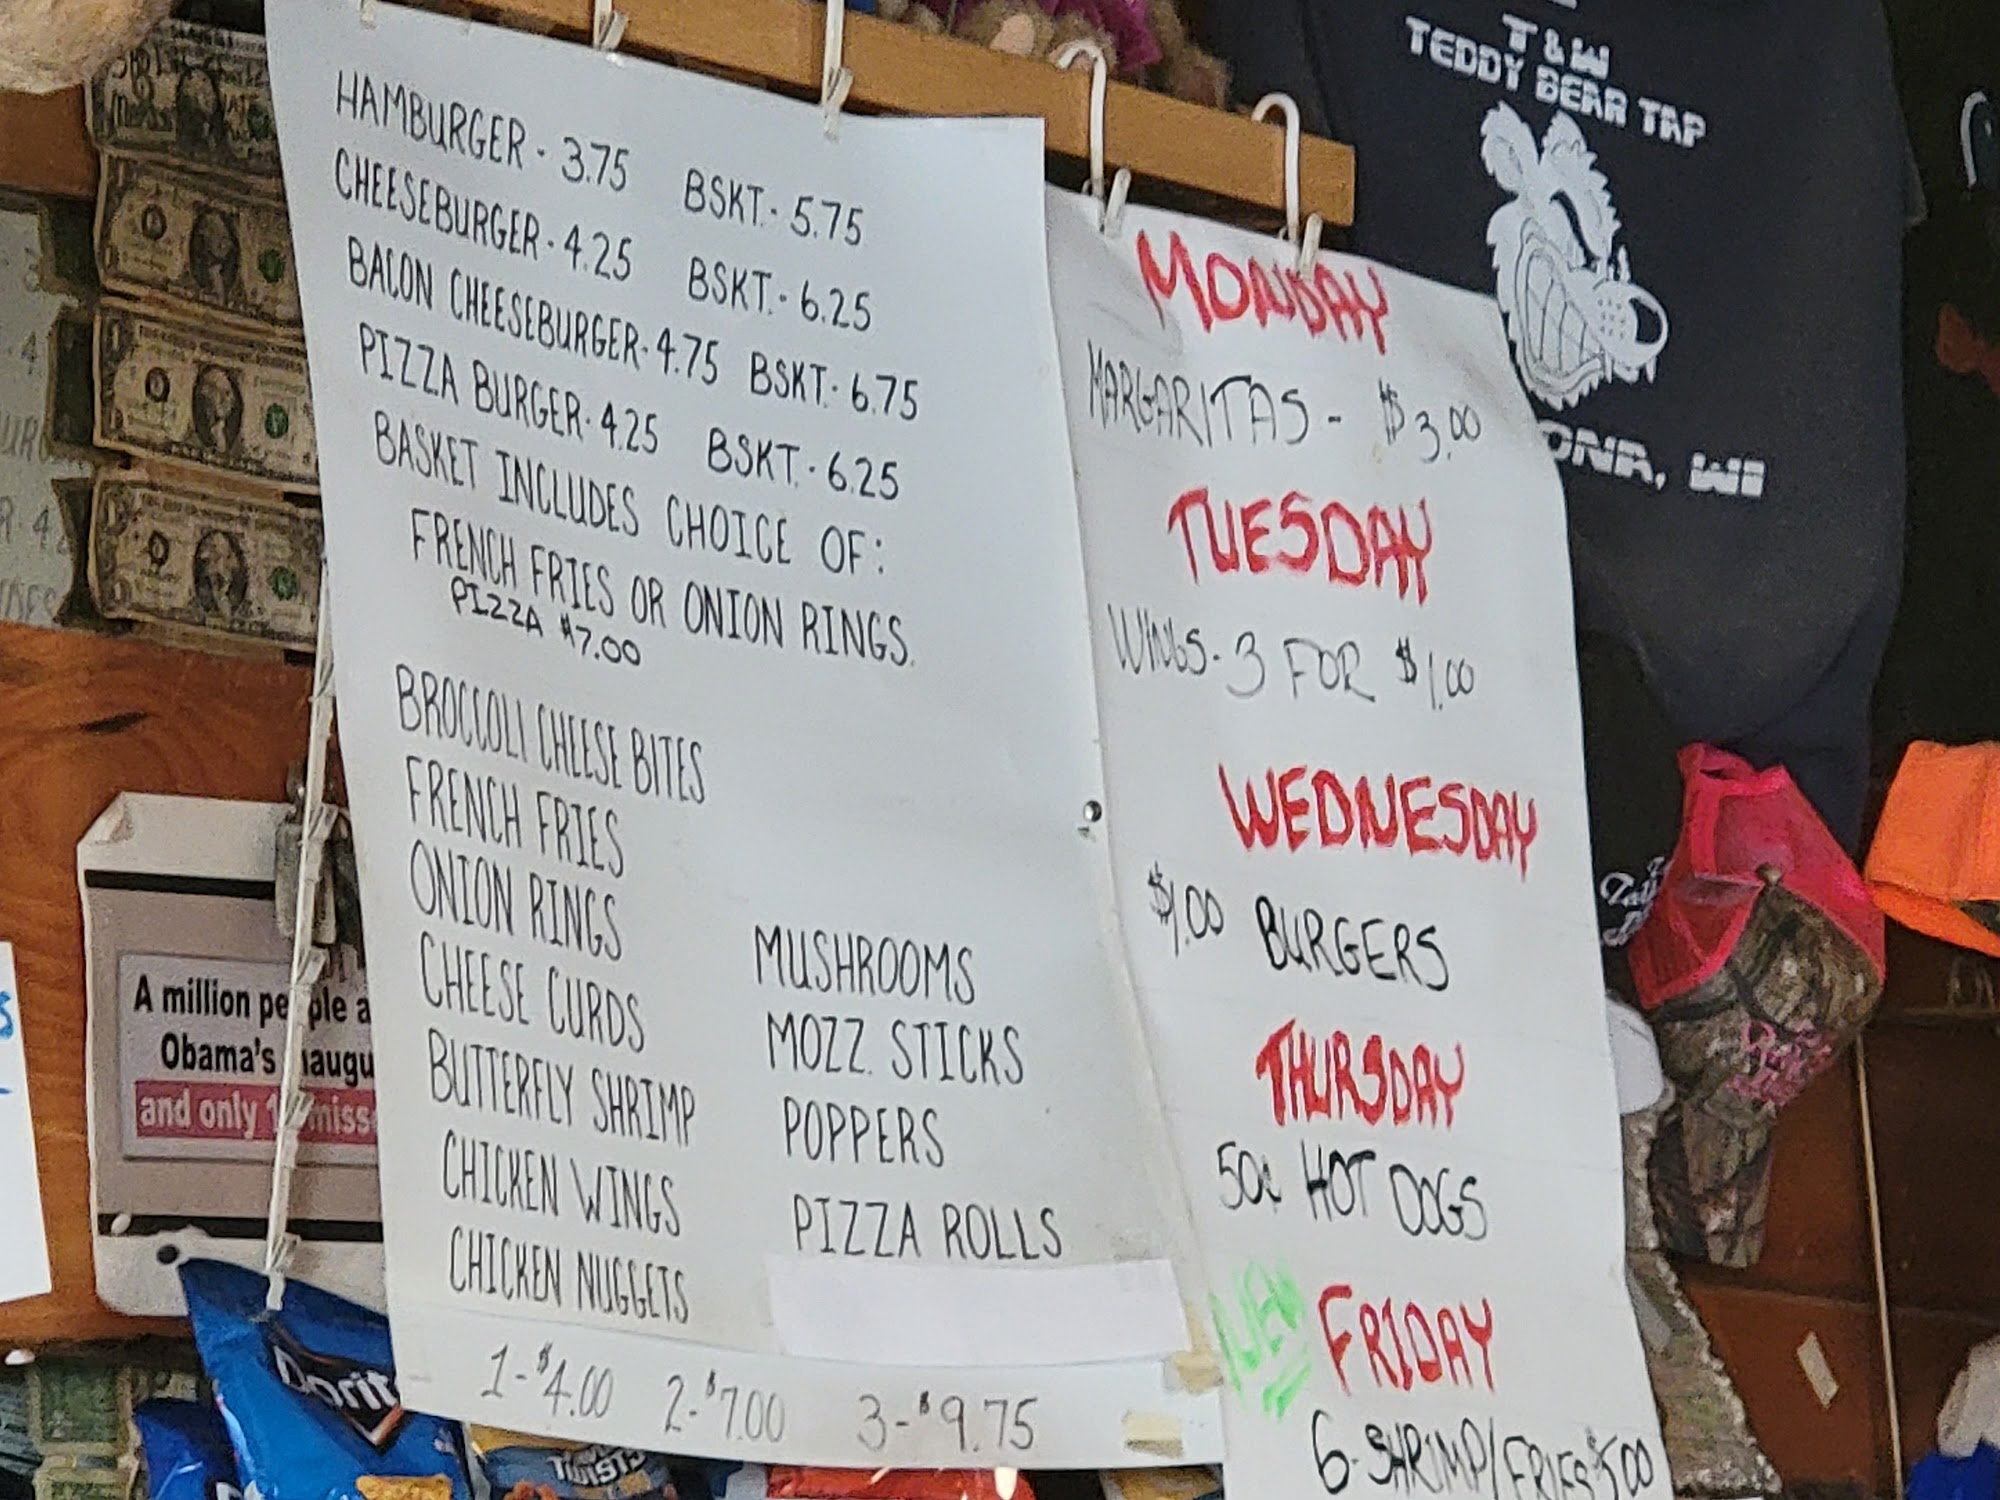 HAMBURGER - 3.75 BSKT. - 5.75
CHEESEBURGER - 4.25 BSKT. - 6.25
BACON CHEESEBURGER - 4.75 BSKT. - 6.75
PIZZA BURGER - 4.25 BSKT. - 6.25
BASKET INCLUDES CHOICE OF:
FRENCH FRIES OR ONION RINGS.
PIZZA $7.00
BROCCOLI CHEESE BITES
FRENCH FRIES
ONION RINGS
CHEESE CURDS
BUTTERFLY SHRIMP
CHICKEN WINGS
CHICKEN NUGGETS
MUSHROOMS
MOZZ. STICKS
POPPERS
PIZZA ROLLS
1-$4.00 2-$7.00 3-$9.75
MONDAY
MARGARITAS - $3.00
TUESDAY
WINGS - 3 FOR $1.00
WEDNESDAY
$1.00 BURGERS
THURSDAY
50¢ HOT DOGS
NEW FRIDAY
6-SHRIMP/FRIES $5.00
T & W
TEDDY BEAR TAP
ONA, WI
A million people a
Obama's inaugu
and only 1 miss
Dorit
TWISTS